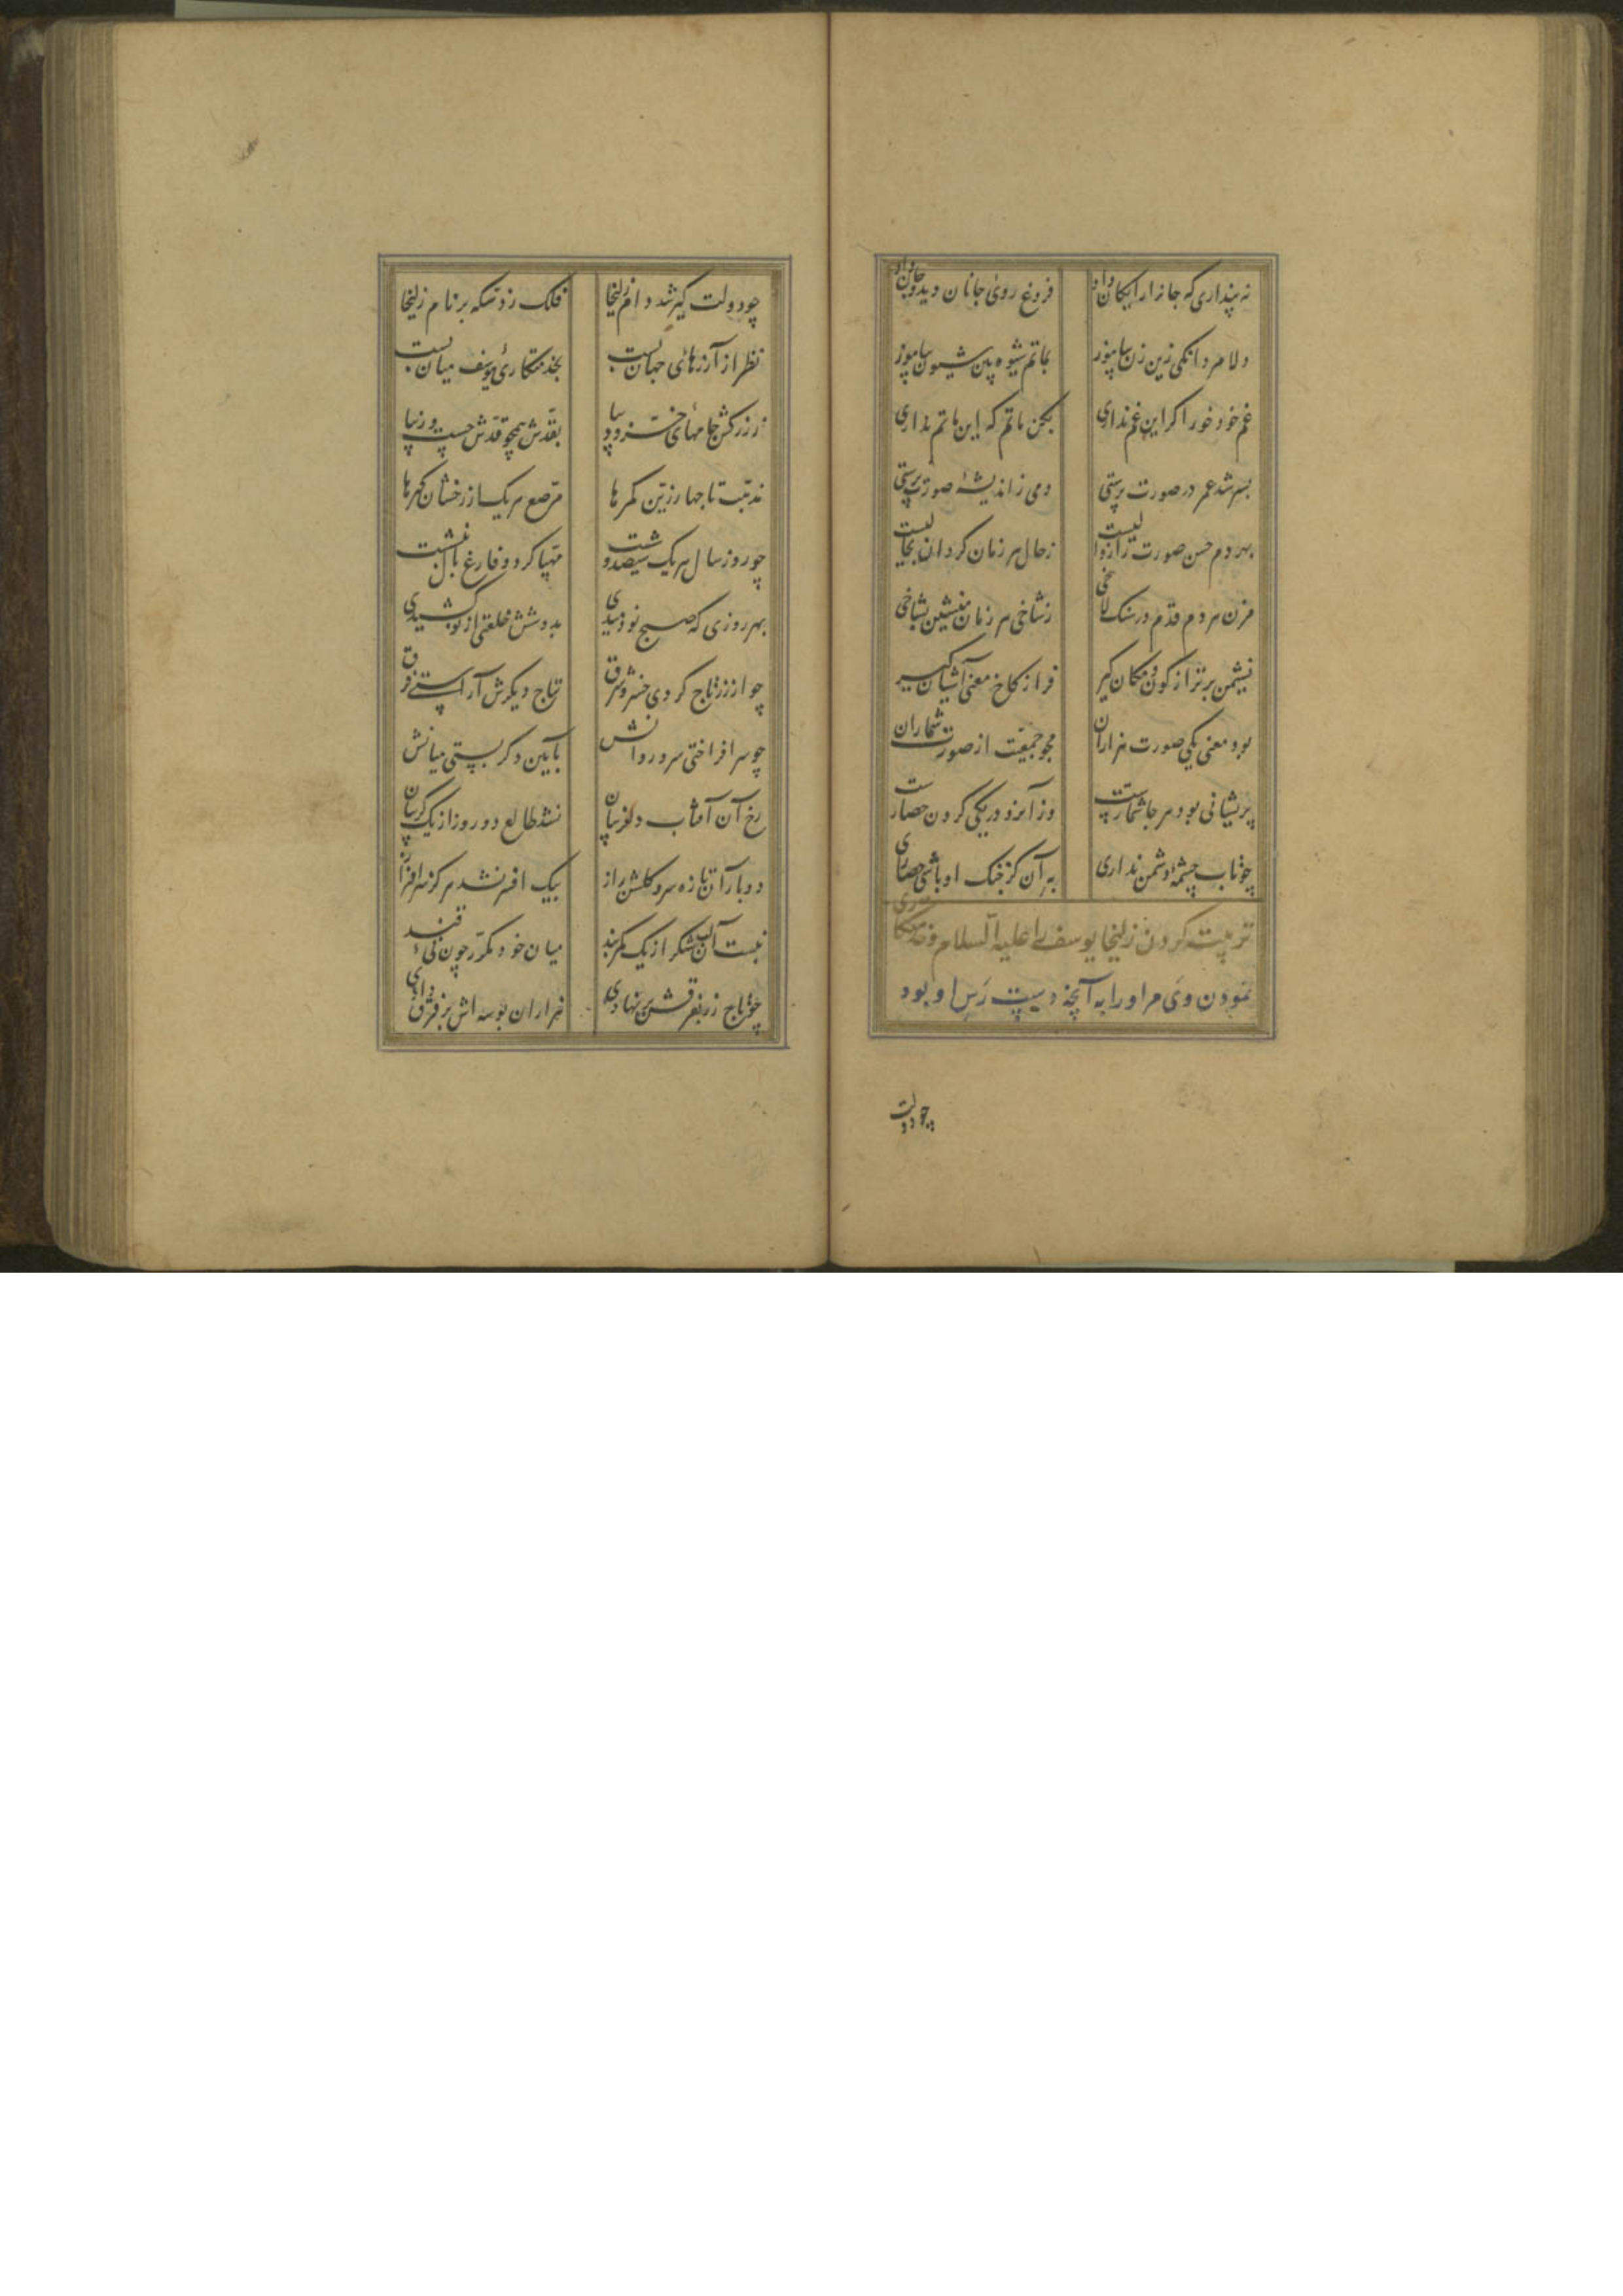 نه پنداری که جانرا رایکان داد فروغ روی جانان دید و جان داد
دلا مردانکی زین زن بیاموز بماتم شیوه این شیون بیاموز
غم خود خور اکر این غم نداری بکن ماتم که این ماتم نداری
بسر شد عمر در صورت پرستی دمی ز اندیشه صورت پرستی
بهر دم حسن صورت را زوالیست ز حال هر زمان کردان بحالیست
مزن هر دم قدم در سنک لاخی ز شاخی هر زمان منشین بشاخی
نشیمن برتر از کون و مکان کیر فراز کاخ معنی آشیان کیر
بود معنی یکی صورت هزاران مجو جمعیت از صورت شماران
پریشانی بود هر جا شمارست وز آن رو در یکی کردن حصارست
چو تاب چشمهٔ دشمن نداری به آن کز جنک او باشی حصاری
تربیت کردن زلیخا یوسف را علیه السلام و خدمتکاری
نمودن وی مر او را به آنچه دست رس او بود
چو دولت
چو دولت کیر شد دام زلیخا فلک زد سکه بر نام زلیخا
نظر از آرزهای جهان بست بخدمتکاری یوسف میان بست
ز زرکش جامهای خز و دیبا بقدش همچو قدش چست و زیبا
مذهب تاجها زرین کمرها مرصع هریک از رخشان کهرها
چو روز سال هریک سیصد و شصت مهیا کرد و فارغ بال بنشست
بهر روزی که صبح نو دمیدی بدوشش خلعتی از نو کشیدی
چو از زر تاج کردی خسرو شرق بتاج دیکرش آراستی فرق
چو سر افراختی سرو روانش بآیین دکر بستی میانش
رخ آن آفتاب دلفریبان نشد طالع دو روز از یک کریبان
دو بار آن تازه سرو کلشن راز بیک افسر نشد هرکز سرافراز
نبست آن لب شکر از یک کمربند میان خود مکرر چون نی قند
چو تاج زر بفرقش برنهادی هزاران بوسه اش بر فرق دادی